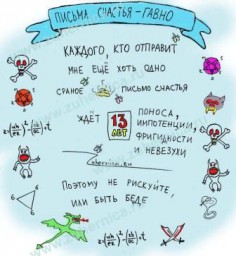 ПИСЬМА СЧАСТЬЯ - ГАВНО
КАЖДОГО, КТО ОТПРАВИТ
МНЕ ЕЩЁ ХОТЬ ОДНО
СРАНОЕ ПИСЬМО СЧАСТЬЯ
ЖДЁТ 13 ЛЕТ ПОНОСА,
ИМПОТЕНЦИИ,
ФРИГИДНОСТИ
И НЕВЕЗУХИ
Zubernica.ru
ПОЭТОМУ НЕ РИСКУЙТЕ,
ИЛИ БЫТЬ БЕДЕ